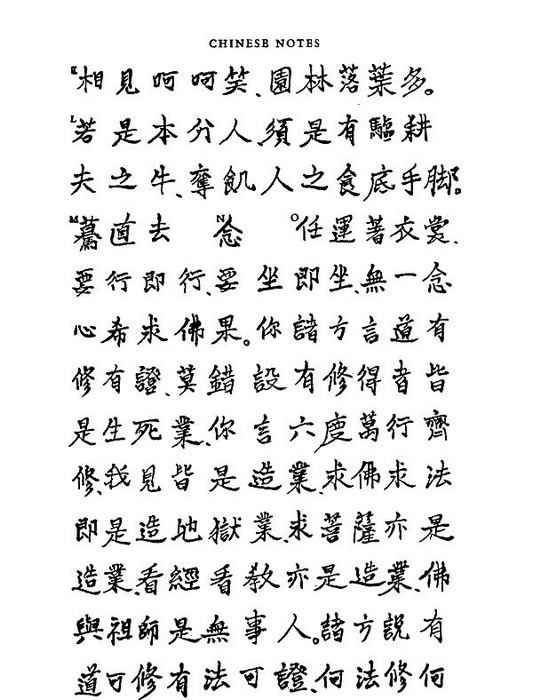 CHINESE NOTES
K相見呵呵笑、園林落葉多。
L若是本分人、須是有驅耕
夫之牛、奪飢人之食底手脚。
M驀直去 N念 O任運著衣裳、
要行即行、要坐即坐、無一念
心希求佛果。你諸方言道有
修有證、莫錯設有修得者皆
是生死業、你言六度萬行齊
修、我見皆是造業、求佛求法
即是造地獄業、求菩薩亦是
造業、看經看教亦是造業、佛
與祖師是無事人。諸方説有
道可修有法可證、何法修何